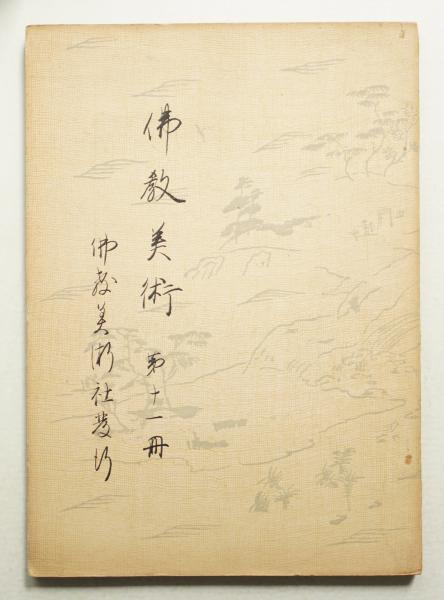 佛教美術 第十一冊
佛教美術社發行